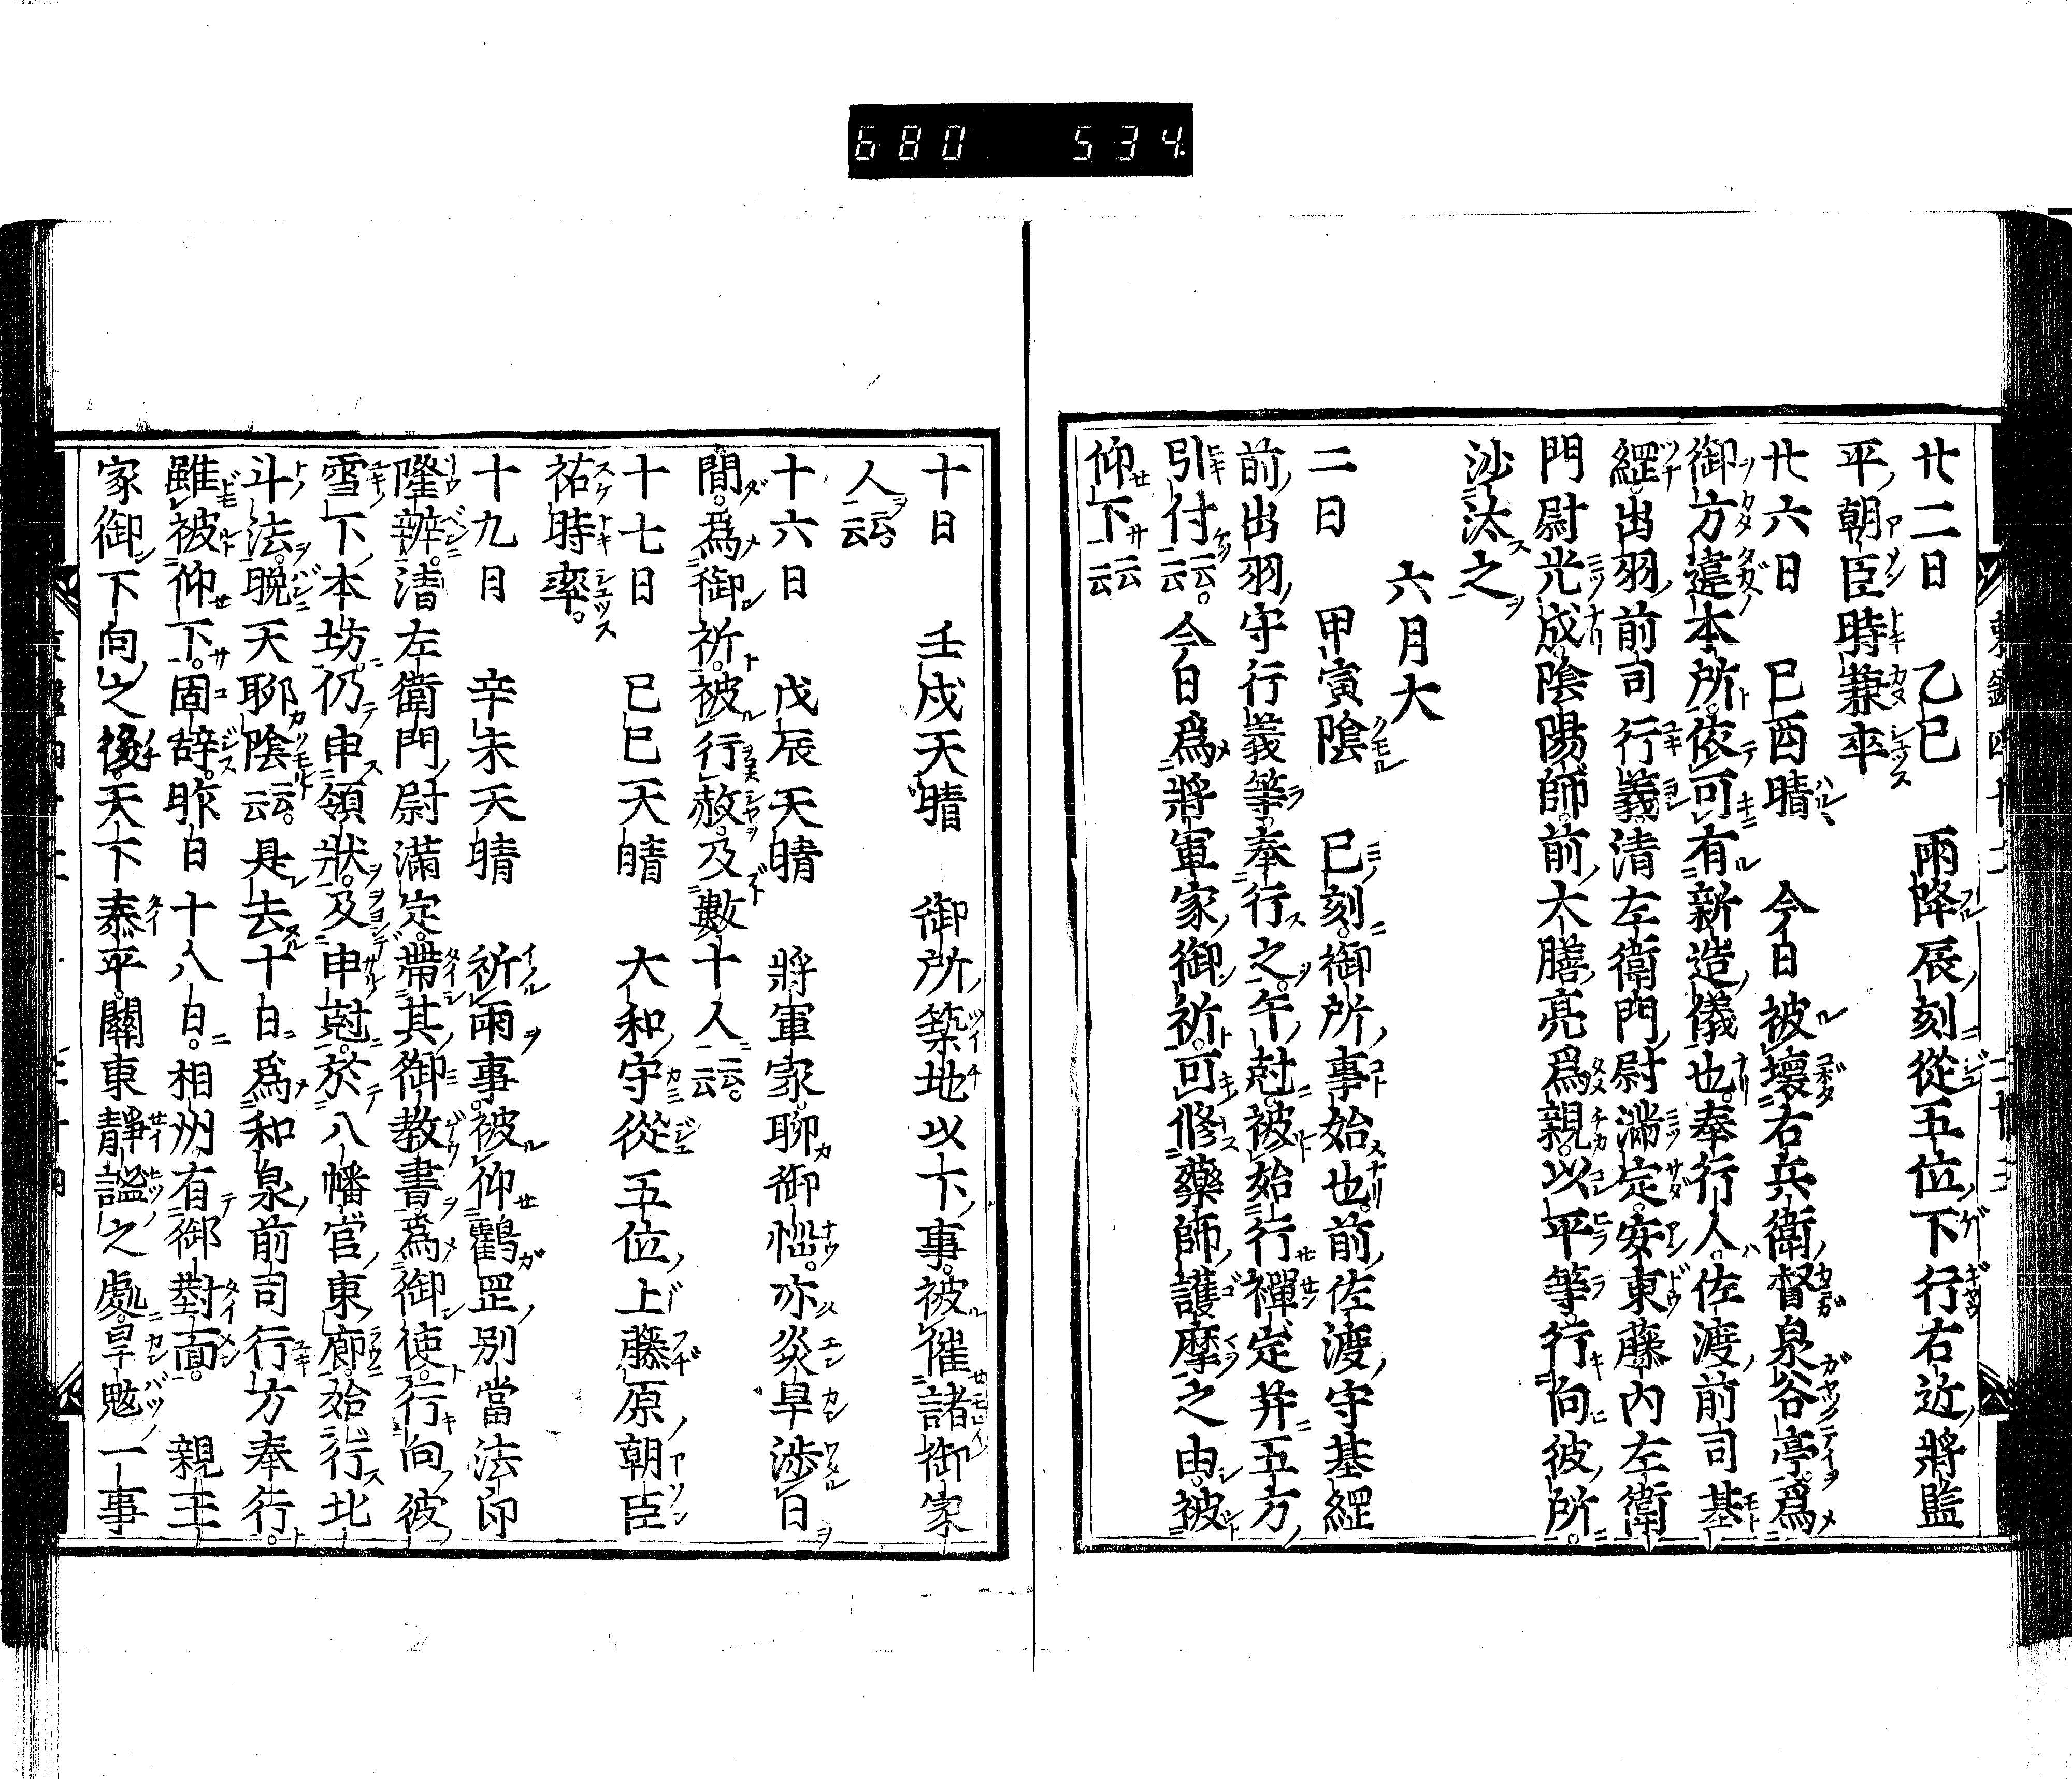 680 534
廿二日 乙巳 雨降辰刻從五位下行右近將監
平朝臣時兼卒
廿六日 巳酉晴 今日被壞右兵衛督泉谷亭爲
御方違本所依可有新造儀也奉行人佐渡前司基
經出羽前司行義清左衛門尉滿定安東藤内左衛
門尉光成陰陽師前大膳亮爲親以平等行向彼所
沙汰之
六月大
二日 甲寅陰 巳刻御所事始也前佐渡守基經
前出羽守行義等奉行之午尅被始行禪定并五方
引付云云今日爲將軍家御祈可修藥師護摩之由被
仰下云云
十日 壬戌天晴 御所築地以下事被催諸御家
人云云
十六日 戊辰天晴 將軍家聊御惱亦炎旱渉日
間爲御祈被行赦及數十人云云
十七日 巳巳天晴 大和守從五位上藤原朝臣
祐時率
十九日 辛未天晴 祈雨事被仰鶴岡別當法印
隆辨清左衛門尉滿定帶其御教書爲御使行向彼
雪下本坊仍申領狀及申尅於八幡宮東廊始行北
斗法晩天聊陰云云是去十日爲和泉前司行方奉行
雖被仰下固辭昨日十八日相州有御對面 親王
家御下向之後天下泰平關東靜謐之處旱魃一事